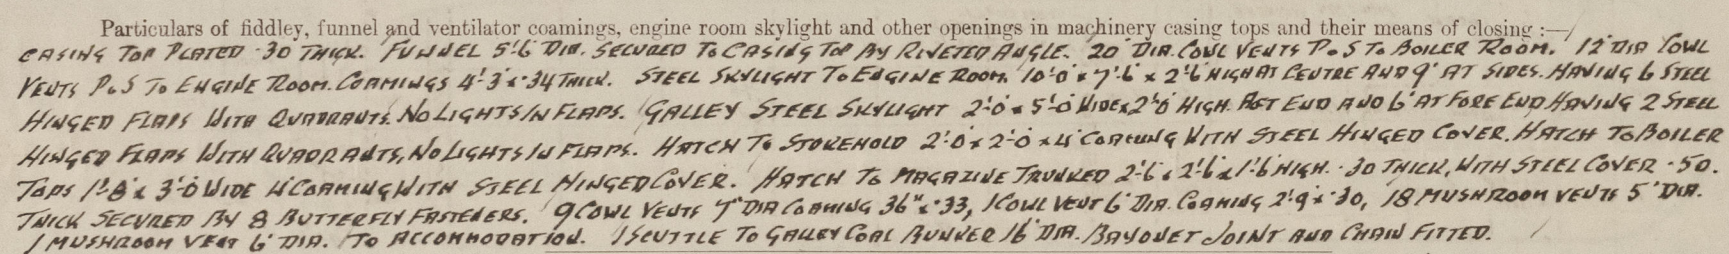 Particulars of fiddley, funnel and ventilator coamings, engine room skylight and other openings in machinery casing tops and their means of closing :—
CASING TOP PLATED ·30 THICK. FUNNEL 5'·6" DIA. SECURED TO CASING TOP BY RIVETED ANGLE. 20" DIA. COWL VENTS P & S TO BOILER ROOM. 12" DIA COWL
VENTS P & S TO ENGINE ROOM. COAMINGS 4'-3" x ·34 THICK. STEEL SKYLIGHT TO ENGINE ROOM. 10'-0" x 7'-6" x 2'-6" HIGH AT CENTRE AND 9" AT SIDES. HAVING 6 STEEL
HINGED FLAPS WITH QUADRANTS. NO LIGHTS IN FLAPS. GALLEY STEEL SKYLIGHT 2'-0" x 5'-0" WIDE x 2'-0" HIGH. AFT END AND 6" AT FORE END, HAVING 2 STEEL
HINGED FLAPS WITH QUADRANTS, NO LIGHTS IN FLAPS. HATCH TO STOKEHOLD 2'-0" x 2'-0" x 4" COAMING WITH STEEL HINGED COVER. HATCH TO BOILER
TOPS 1'-8" x 3'-0" WIDE 4" COAMING WITH STEEL HINGED COVER. HATCH TO MAGAZINE TRUNKED 2'-6" x 2'-6" x 1'-6" HIGH. ·30 THICK, WITH STEEL COVER ·50.
THICK SECURED BY 8 BUTTERFLY FASTENERS. 9 COWL VENTS 7" DIA COAMING 36" x ·33, 1 COWL VENT 6" DIA. COAMING 2'-9" x ·30, 18 MUSHROOM VENTS 5" DIA.
1 MUSHROOM VENT 6" DIA. TO ACCOMMODATION. 1 SCUTTLE TO GALLEY COAL BUNKER 16" DIA. BAYONET JOINT AND CHAIN FITTED.